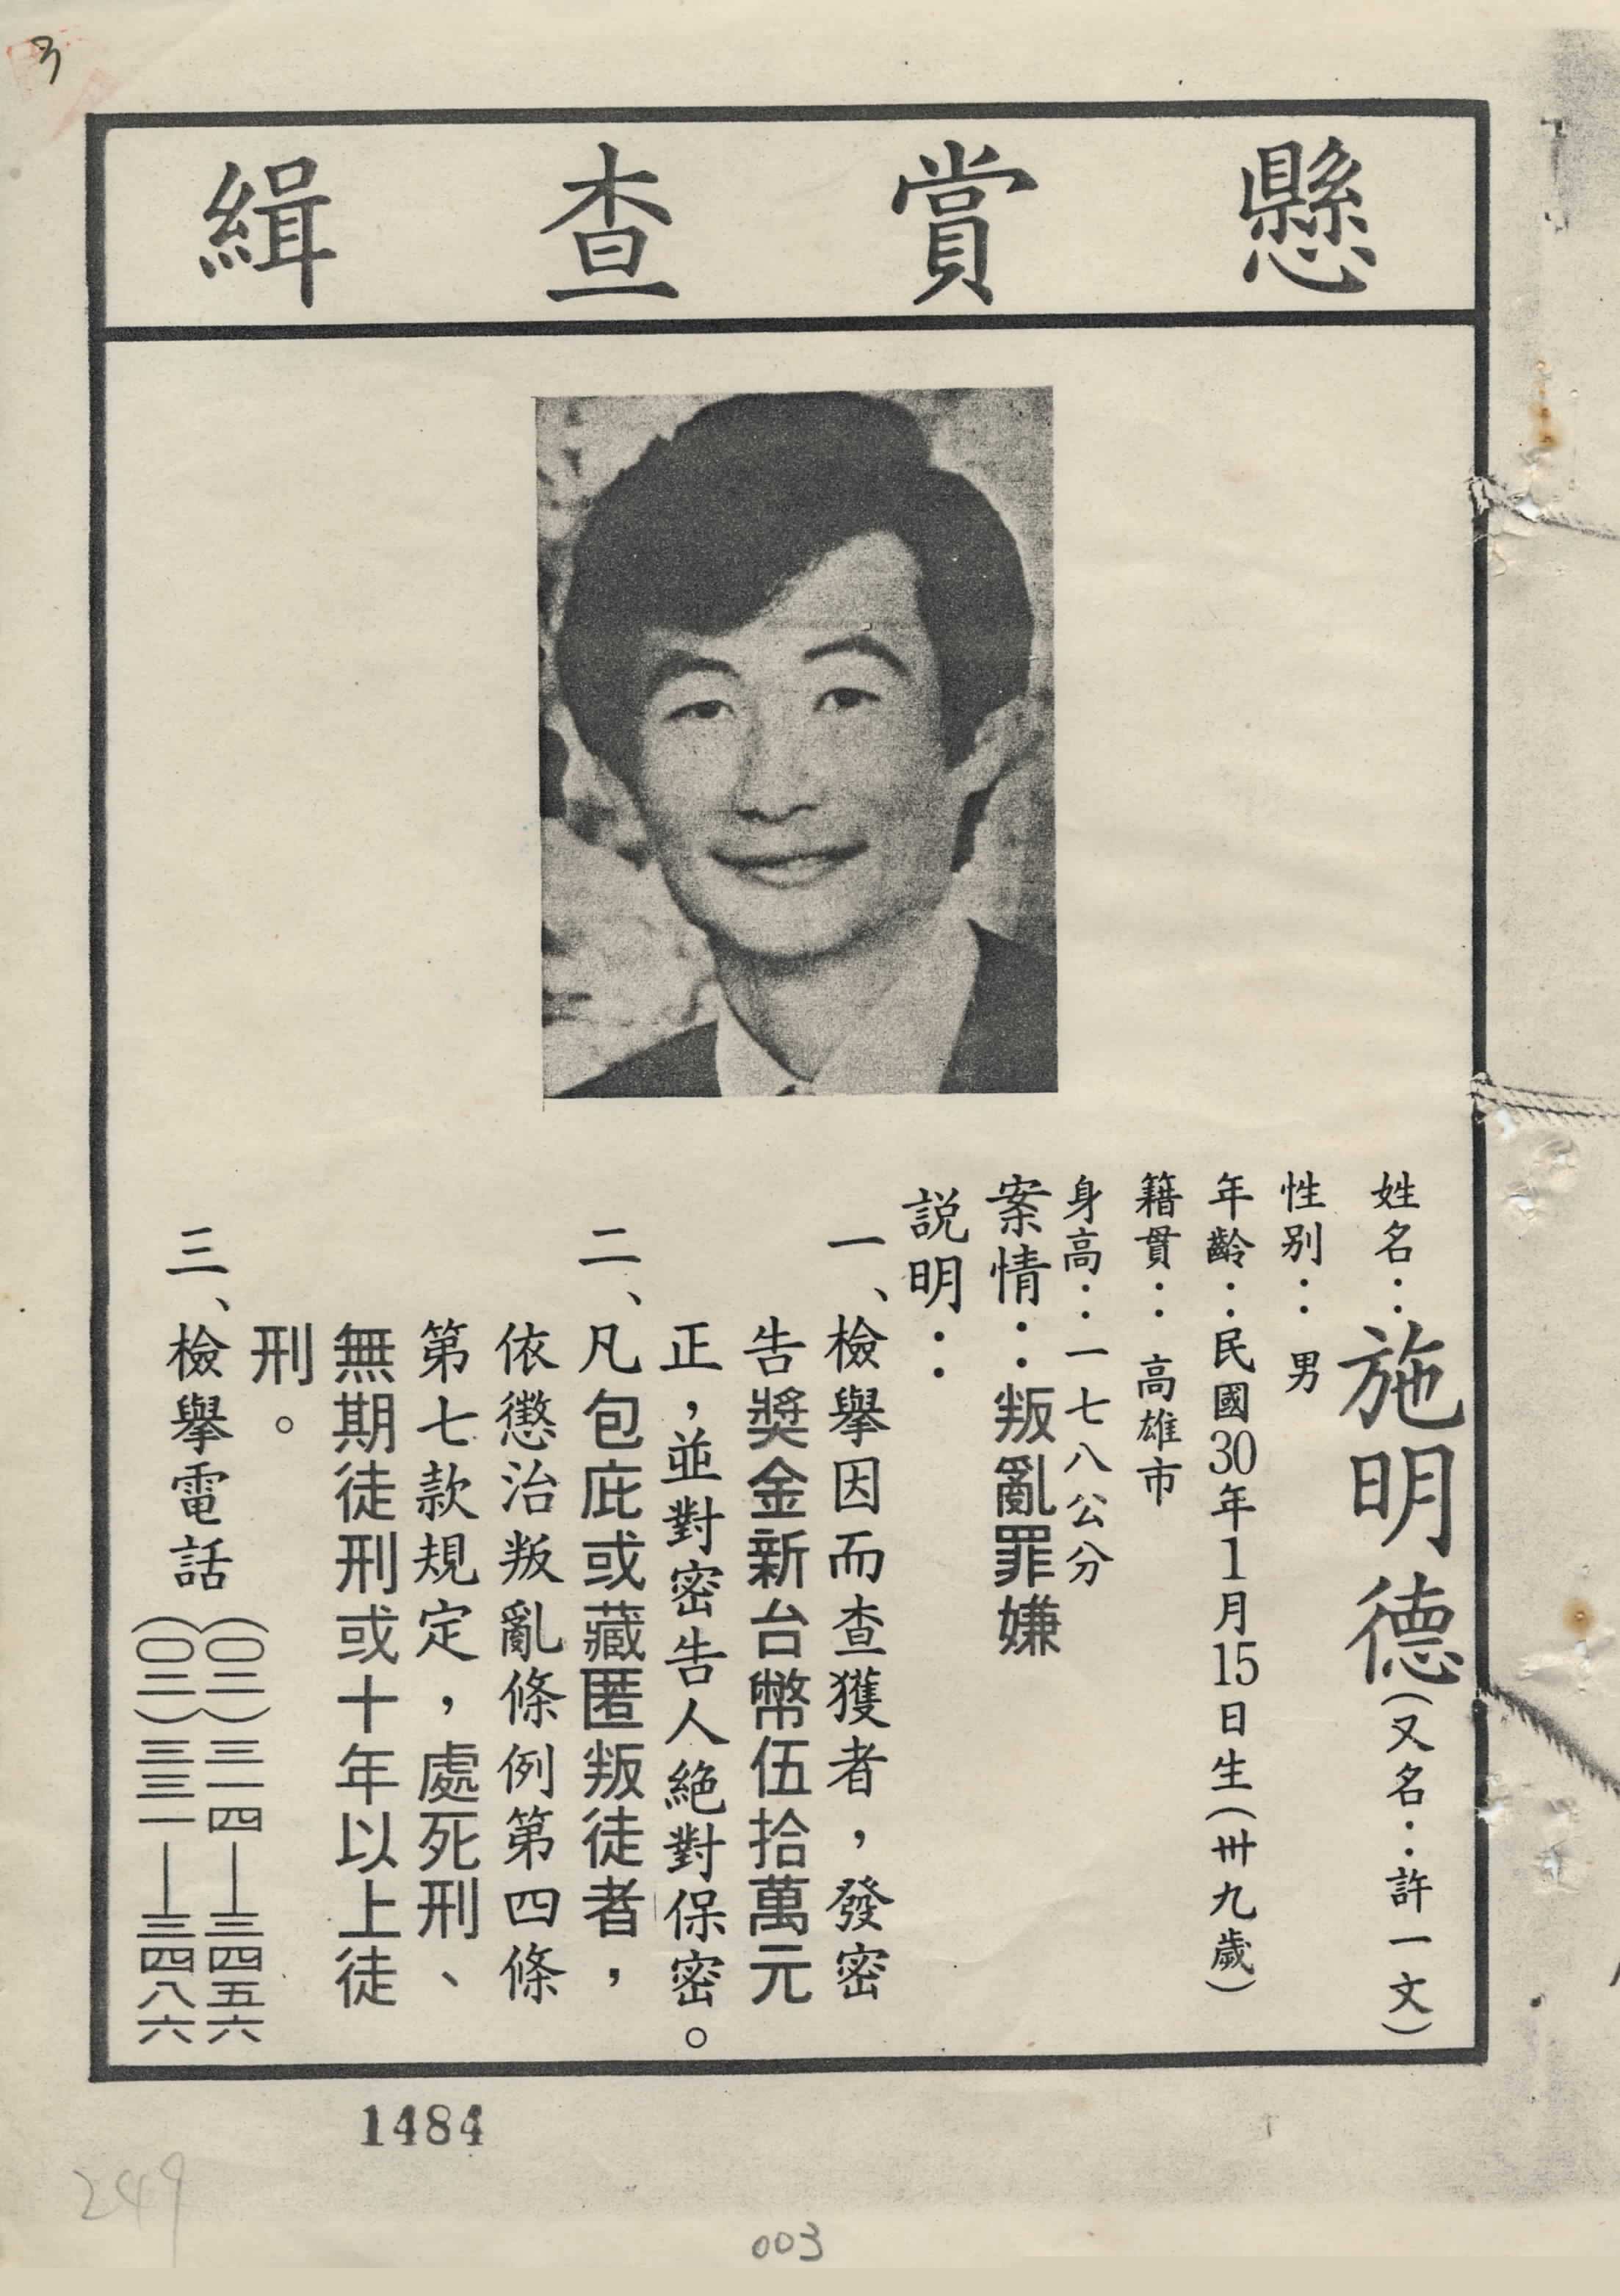 懸賞查緝
姓名：施明德（又名：許一文）
性别：男
年齡：民國30年1月15日生（卅九歲）
籍貫：高雄市
身高：一七八公分
案情：叛亂罪嫌
説明：
一、檢舉因而查獲者，發密
告獎金新台幣伍拾萬元
正，並對密告人絕對保密。
二、凡包庇或藏匿叛徒者，
依懲治叛亂條例第四條
第七款規定，處死刑、
無期徒刑或十年以上徒
刑。
三、檢舉電話
（〇二）三一四—三四五六
（〇二）三三一—三四八六
1484
249
003
3